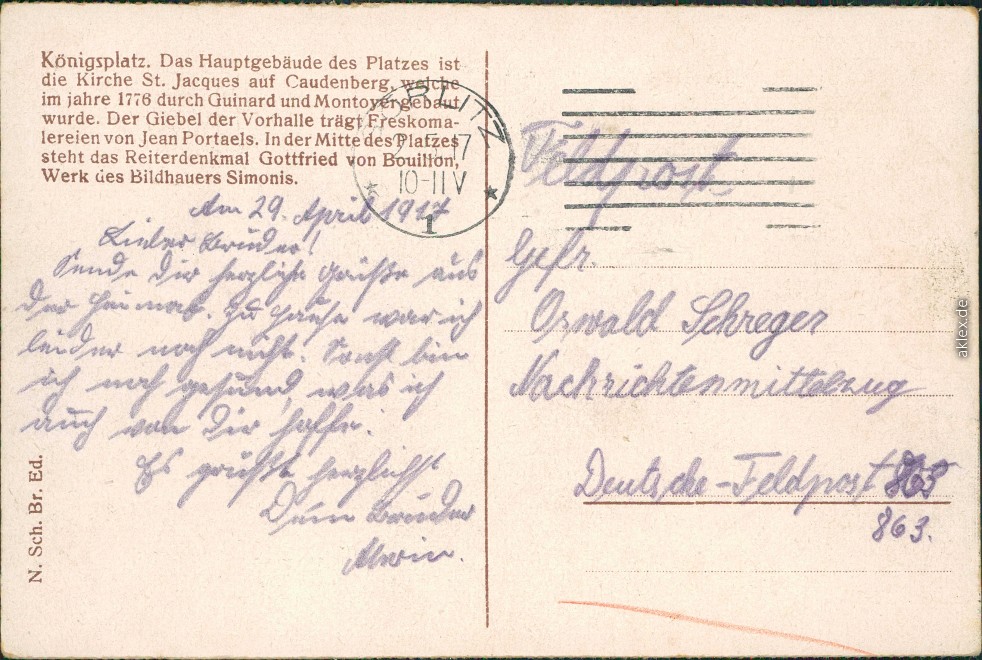 Königsplatz. Das Hauptgebäude des Platzes ist
die Kirche St. Jacques auf Caudenberg, welche
im jahre 1776 durch Guinard und Montoyer gebaut
wurde. Der Giebel der Vorhalle trägt Freskoma-
lereien von Jean Portaels. In der Mitte des Platzes
steht das Reiterdenkmal Gottfried von Bouillon,
Werk des Bildhauers Simonis.
RLITZ
5.17
10-11 V
1
Am 29. April 1917
Lieber Bruder!
Sende dir herzliche Grüße aus
der Heimat. Zu Hause war ich
leider noch nicht. Sonst bin
ich noch gesund, was ich
auch von Dir hoffe.
Es grüßt herzlichst
Dein Bruder
Alwin.
N. Sch. Br. Ed.
Feldpost
Gefr.
Oswald Schreger
Nachrichtenmittelzug
Deutsche-Feldpost
863.
aklex.de